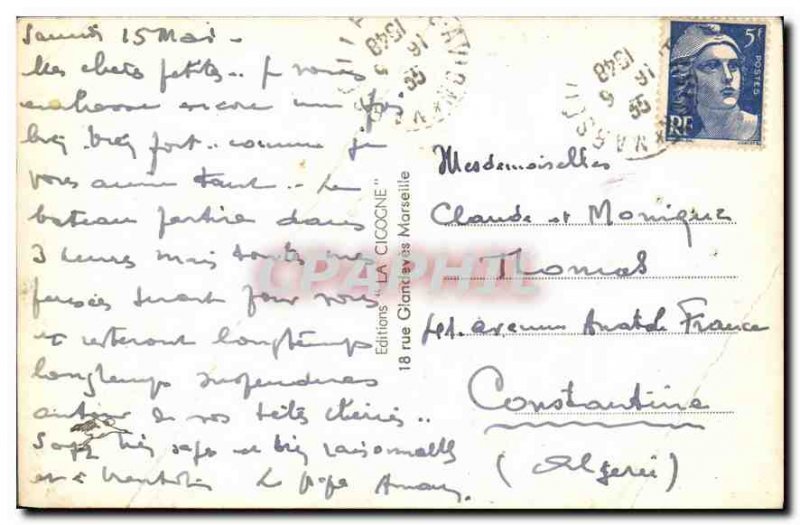 Samedi 15 Mai -
Mes chères petites.. je vous
embrasse encore une fois
bien bien fort.. comme je
vous aime tant.. Le
bateau partira dans
3 heures mais toutes mes
pensées seront pour vous
et resteront longtemps
longtemps suspendues
autour de vos têtes chéries..
Soyez très sages et bien raisonnables
et à bientôt. Le papa
Editions "LA CICOGNE"
18 rue Glandevès Marseille
CPAPHIL
5F
POSTES
RF
MARSEILLE
16 - 5
1948
Mesdemoiselles
Claude et Monique
Thomas
41. avenue Anatole France
Constantine
(Algérie)